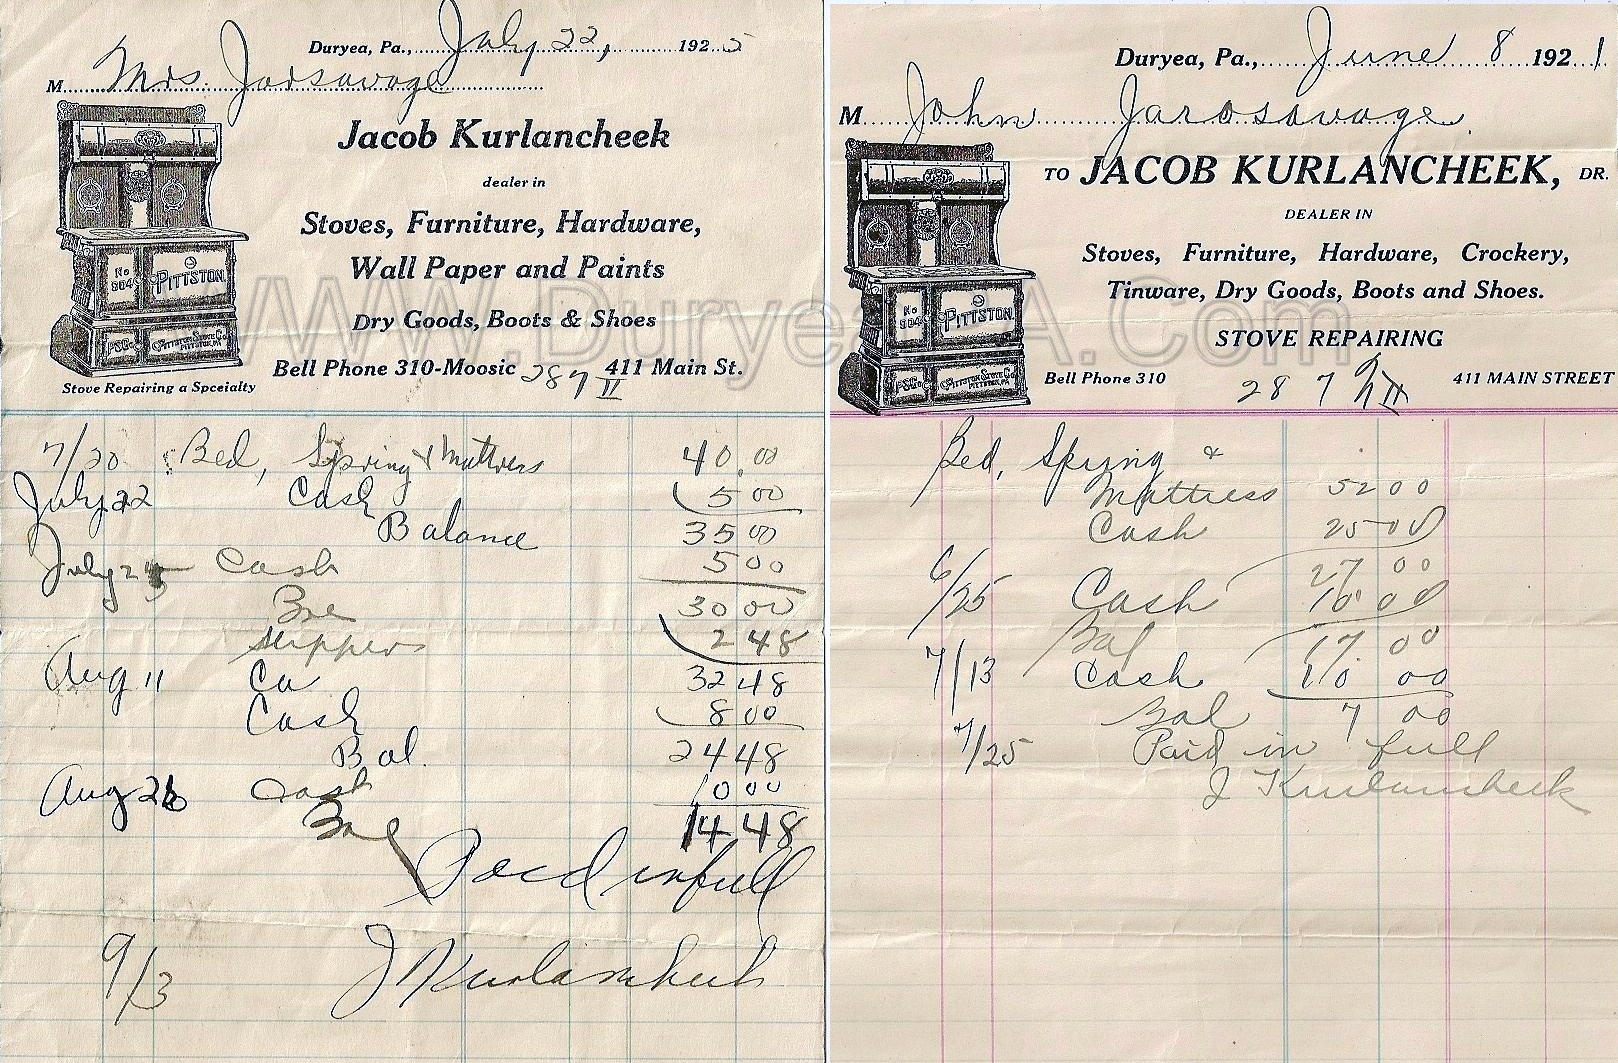 Duryea, Pa., July 22, 1925
M Mrs. Jarsavage
Jacob Kurlancheek
dealer in
Stoves, Furniture, Hardware,
Wall Paper and Paints
Dry Goods, Boots & Shoes
Bell Phone 310-Moosic 287 411 Main St.
No 804 PITTSTON
PSCo. PITTSTON STOVE Co. PITTSTON, PA
Stove Repairing a Spceialty
7/20 Bed, Spring & Mattress 40.00
July 22 Cash 5 00
Balance 35 00
July 25 Cash 5 00
Bal 30 00
Slippers 2 48
Aug 11 Ca 32 48
Cash 8 00
Bal. 24 48
Aug 26 Cash 10 00
Bal 14 48
Paid in full
9/3 J Kurlancheek
Duryea, Pa., June 8 1921
M John Jarosavage
TO JACOB KURLANCHEEK, DR.
DEALER IN
Stoves, Furniture, Hardware, Crockery,
Tinware, Dry Goods, Boots and Shoes.
STOVE REPAIRING
Bell Phone 310 287 411 MAIN STREET
No 804 PITTSTON
PSCo. PITTSTON STOVE Co. PITTSTON, PA
Bed, Spring &
Mattress 52 00
Cash 25 00
27 00
6/25 Cash 10 00
Bal 17 00
7/13 Cash 10 00
Bal 7 00
7/25 Paid in full
J Kurlancheek
WWW.DuryeaPA.Com